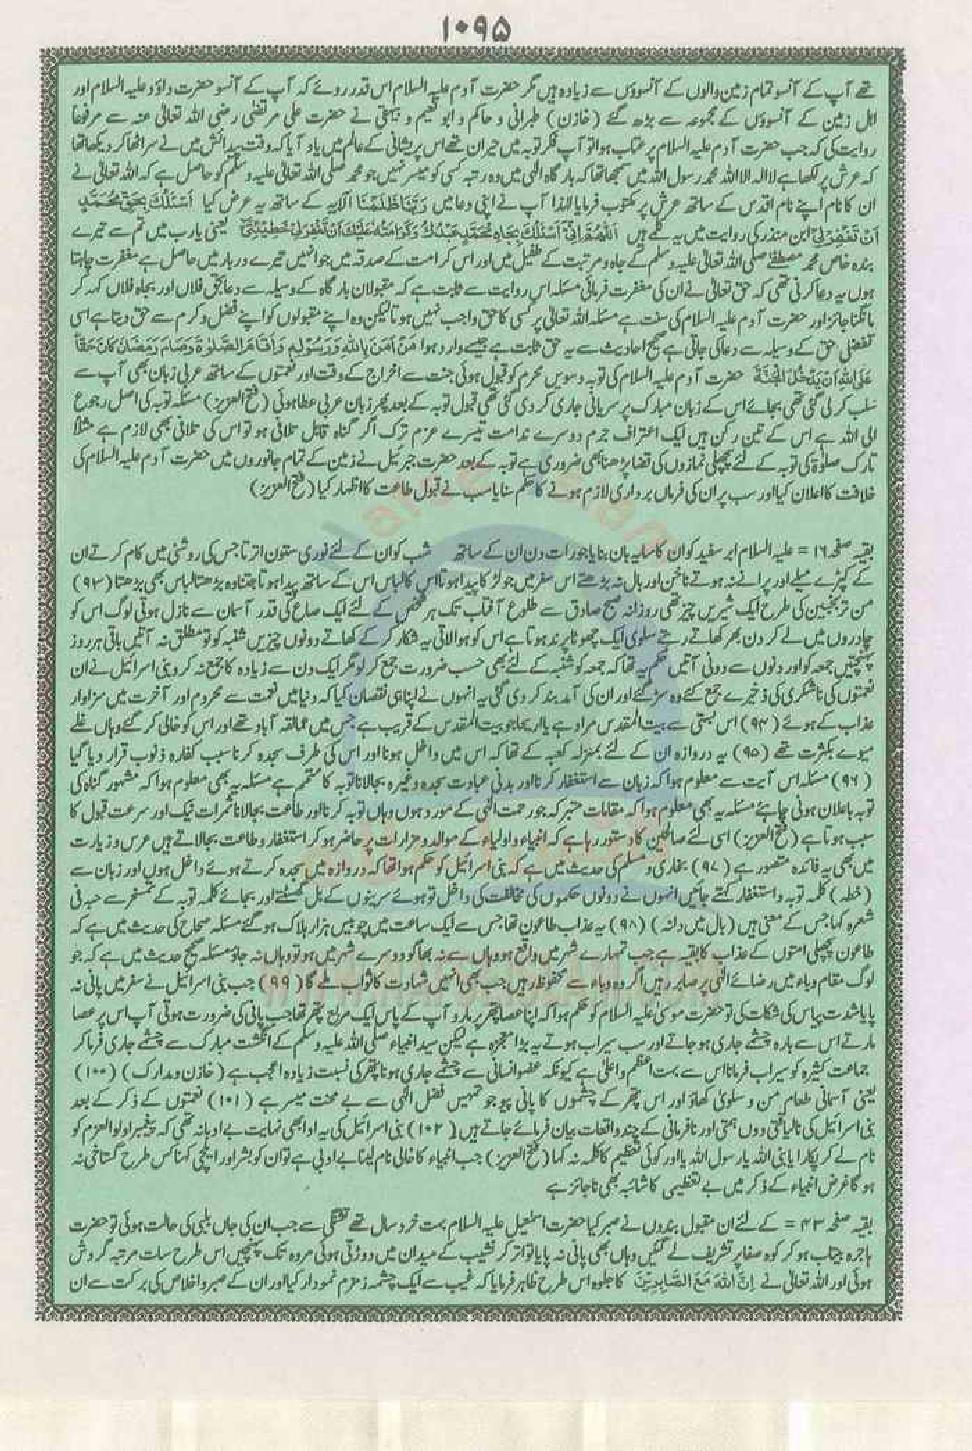 ۱۰۹۵
تھے آپ کے آنسو تمام زمین والوں کے آنسوؤں سے زیادہ ہیں مگر حضرت آدم علیہ السلام اس قدر روئے کہ آپ کے آنسو حضرت داؤد علیہ السلام اور
اہل زمین کے آنسوؤں کے مجموعہ سے بڑھ گئے (خازن) طبرانی و حاکم و ابو نعیم و بیہقی نے حضرت علی مرتضیٰ رضی اللہ تعالیٰ عنہ سے مرفوعاً
روایت کی کہ جب حضرت آدم علیہ السلام پر عتاب ہوا تو آپ فکر توبہ میں حیران تھے اس پریشانی کے عالم میں یاد آیا کہ وقت پیدائش میں نے سر اٹھا کر دیکھا تھا
کہ عرش پر لکھا ہے لا الہ الا اللہ محمد رسول اللہ میں سمجھا تھا کہ بارگاہ الٰہی میں وہ رتبہ کسی کو میسر نہیں جو محمد صلی اللہ تعالیٰ علیہ وسلم کو حاصل ہے کہ اللہ تعالیٰ نے
ان کا نام اپنے نام اقدس کے ساتھ عرش پر مکتوب فرمایا لہٰذا آپ نے اپنی دعا میں رَبَّنَا ظَلَمْنَا الآیہ کے ساتھ یہ عرض کیا اَسْئَلُكَ بِحَقِّ مُحَمَّدٍ
اَنْ تَغْفِرَ لِیْ ابن منذر کی روایت میں یہ کلمے ہیں اَللّٰهُمَّ اِنِّیْ اَسْئَلُكَ بِجَاهِ مُحَمَّدٍ عَبْدِكَ وَكَرَامَتِهٖ عَلَیْكَ اَنْ تَغْفِرَ لِیْ خَطِیْئَتِیْ یعنی یارب میں تجھ سے تیرے
بندہ خاص محمد مصطفےٰ صلی اللہ تعالیٰ علیہ وسلم کے جاہ و مرتبت کے طفیل میں اور اس کرامت کے صدقہ میں جو انہیں تیرے دربار میں حاصل ہے مغفرت چاہتا
ہوں یہ دعا کرنی تھی کہ حق تعالیٰ نے ان کی مغفرت فرمائی مسئلہ اس روایت سے ثابت ہے کہ مقبولان بارگاہ کے وسیلہ سے دعا بحق فلاں اور بجاہ فلاں کہہ کر
مانگنا جائز اور حضرت آدم علیہ السلام کی سنت ہے مسئلہ اللہ تعالیٰ پر کسی کا حق واجب نہیں ہوتا لیکن وہ اپنے مقبولوں کو اپنے فضل و کرم سے حق دیتا ہے اسی
تفضلی حق کے وسیلہ سے دعا کی جاتی ہے صحیح احادیث سے یہ حق ثابت ہے جیسے وارد ہوا مَنْ اٰمَنَ بِاللّٰهِ وَرَسُوْلِهٖ وَاَقَامَ الصَّلٰوةَ وَصَامَ رَمَضَانَ كَانَ حَقًّا
عَلَى اللّٰهِ اَنْ یَّدْخُلَ الْجَنَّةَ حضرت آدم علیہ السلام کی توبہ دسویں محرم کو قبول ہوئی جنت سے اخراج کے وقت اور نعمتوں کے ساتھ عربی زبان بھی آپ سے
سلب کرلی گئی تھی بجائے اس کے زبان مبارک پر سریانی جاری کر دی گئی تھی قبول توبہ کے بعد پھر زبان عربی عطا ہوئی (فتح العزیز) مسئلہ توبہ کی اصل رجوع
الی اللہ ہے اس کے تین رکن ہیں ایک اعتراف جرم دوسرے ندامت تیسرے عزم ترک اگر گناہ قابل تلافی ہو تو اس کی تلافی بھی لازم ہے مثلاً
تارک صلوٰۃ کی توبہ کے لئے پچھلی نمازوں کی قضا پڑھنا بھی ضروری ہے توبہ کے بعد حضرت جبرئیل نے زمین کے تمام جانوروں میں حضرت آدم علیہ السلام کی
خلافت کا اعلان کیا اور سب پر ان کی فرماں برداری لازم ہونے کا حکم سنایا سب نے قبول طاعت کا اظہار کیا (فتح العزیز)
بقیہ صفحہ ۱۶ = علیہ السلام ابر سفید کو ان کا سایہ بان بنایا جو رات دن ان کے ساتھ شب کو ان کے لئے نوری ستون اترتا جس کی روشنی میں کام کرتے ان
کے کپڑے میلے اور پرانے نہ ہوتے ناخن اور بال نہ بڑھتے اس سفر میں جو لڑکا پیدا ہوتا اس کا لباس اس کے ساتھ پیدا ہوتا جتنا وہ بڑھتا لباس بھی بڑھتا (۹۲)
من ترنجبین کی طرح ایک شیریں چیز تھی روزانہ صبح صادق سے طلوع آفتاب تک ہر شخص کے لئے ایک صاع کی قدر آسمان سے نازل ہوتی لوگ اس کو
چادروں میں لے کر دن بھر کھاتے رہتے سلویٰ ایک چھوٹا پرند ہوتا ہے اس کو ہوا لاتی یہ شکار کر کے کھاتے دونوں چیزیں شنبہ کو تو مطلق نہ آتیں باقی ہر روز
پہنچتیں جمعہ کو اور دنوں سے دونی آتیں حکم یہ تھا کہ جمعہ کو شنبہ کے لئے بھی حسب ضرورت جمع کر لو مگر ایک دن سے زیادہ کا جمع نہ کرو بنی اسرائیل نے ان
نعمتوں کی ناشکری کی ذخیرے جمع کئے وہ سڑ گئے اور ان کی آمد بند کر دی گئی یہ انہوں نے اپنا ہی نقصان کیا کہ دنیا میں نعمت سے محروم اور آخرت میں سزاوار
عذاب کے ہوئے (۹۳) اس بستی سے بیت المقدس مراد ہے یا اریحا جو بیت المقدس کے قریب ہے جس میں عمالقہ آباد تھے اور اس کو خالی کر گئے وہاں غلے
میوے بکثرت تھے (۹۵) یہ دروازہ ان کے لئے بمنزلہ کعبہ کے تھا کہ اس میں داخل ہونا اور اس کی طرف سجدہ کرنا سبب کفارہ ذنوب قرار دیا گیا
(۹۶) مسئلہ اس آیت سے معلوم ہوا کہ زبان سے استغفار کرنا اور بدنی عبادت سجدہ وغیرہ بجا لانا توبہ کا متمم ہے مسئلہ یہ بھی معلوم ہوا کہ مشہور گناہ کی
توبہ باعلان ہونی چاہئے مسئلہ یہ بھی معلوم ہوا کہ مقامات متبرکہ جو رحمت الٰہی کے مورد ہوں وہاں توبہ کرنا اور طاعت بجا لانا ثمرات نیک اور سرعت قبول کا
سبب ہوتا ہے (فتح العزیز) اسی لئے صالحین کا دستور رہا ہے کہ انبیاء و اولیاء کے موالد و مزارات پر حاضر ہو کر استغفار و طاعت بجالاتے ہیں عرس و زیارت
میں بھی یہ فائدہ متصور ہے (۹۷) بخاری و مسلم کی حدیث میں ہے کہ بنی اسرائیل کو حکم ہوا تھا کہ دروازہ میں سجدہ کرتے ہوئے داخل ہوں اور زبان سے
(حطہ) کلمہ توبہ و استغفار کہتے جائیں انہوں نے دونوں حکموں کی مخالفت کی داخل تو ہوئے سرینوں کے بل گھسٹتے اور بجائے کلمہ توبہ کے تمسخر سے حبۃ فی
شعرہ کہا جس کے معنی ہیں (بال میں دانہ) (۹۸) یہ عذاب طاعون تھا جس سے ایک ساعت میں چوبیس ہزار ہلاک ہو گئے مسئلہ صحاح کی حدیث میں ہے کہ
طاعون پچھلی امتوں کے عذاب کا بقیہ ہے جب تمہارے شہر میں واقع ہو وہاں سے نہ بھاگو دوسرے شہر میں ہو تو وہاں نہ جاؤ مسئلہ صحیح حدیث میں ہے کہ جو
لوگ مقام وباء میں رضائے الٰہی پر صابر رہیں اگر وہ وباء سے محفوظ رہیں جب بھی انہیں شہادت کا ثواب ملے گا (۹۹) جب بنی اسرائیل نے سفر میں پانی نہ
پایا شدت پیاس کی شکایت کی تو حضرت موسیٰ علیہ السلام کو حکم ہوا کہ اپنا عصا پتھر پر مارو آپ کے پاس ایک مربع پتھر تھا جب پانی کی ضرورت ہوتی آپ اس پر عصا
مارتے اس سے بارہ چشمے جاری ہو جاتے اور سب سیراب ہوتے یہ بڑا معجزہ ہے لیکن سید انبیاء صلی اللہ علیہ وسلم کے انگشت مبارک سے چشمے جاری فرما کر
جماعت کثیرہ کو سیراب فرمانا اس سے بہت اعظم و اعلیٰ ہے کیونکہ عضو انسانی سے چشمے جاری ہونا پتھر کی نسبت زیادہ اعجب ہے (خازن و مدارک) (۱۰۰)
یعنی آسمانی طعام من و سلویٰ کھاؤ اور اس پتھر کے چشموں کا پانی پیو جو تمہیں فضل الٰہی سے بے محنت میسر ہے (۱۰۱) نعمتوں کے ذکر کے بعد
بنی اسرائیل کی نالیاقتی دوں ہمتی اور نافرمانی کے چند واقعات بیان فرمائے جاتے ہیں (۱۰۲) بنی اسرائیل کی یہ ادا بھی نہایت بے ادبانہ تھی کہ پیغمبر اولوالعزم کو
نام لے کر پکارا یا نبی اللہ یا رسول اللہ یا اور کوئی تعظیم کا کلمہ نہ کہا (فتح العزیز) جب انبیاء کا خالی نام لینا بے ادبی ہے تو ان کو بشر اور ایلچی کہنا کس طرح گستاخی نہ
ہو گا غرض انبیاء کے ذکر میں بے تعظیمی کا شائبہ بھی ناجائز ہے
بقیہ صفحہ ۴۳ = کے لئے ان مقبول بندوں نے صبر کیا حضرت اسمٰعیل علیہ السلام بہت خرد سال تھے تشنگی سے جب ان کی جاں بلبی کی حالت ہوئی تو حضرت
ہاجرہ بیتاب ہو کر کوہ صفا پر تشریف لے گئیں وہاں بھی پانی نہ پایا تو اتر کر نشیب کے میدان میں دوڑتی ہوئی مروہ تک پہنچیں اس طرح سات مرتبہ گردش
ہوئی اور اللہ تعالیٰ نے اِنَّ اللّٰهَ مَعَ الصّٰبِرِیْنَ کا جلوہ اس طرح ظاہر فرمایا کہ غیب سے ایک چشمہ زمزم نمودار کیا اور ان کے صبر و اخلاص کی برکت سے ان